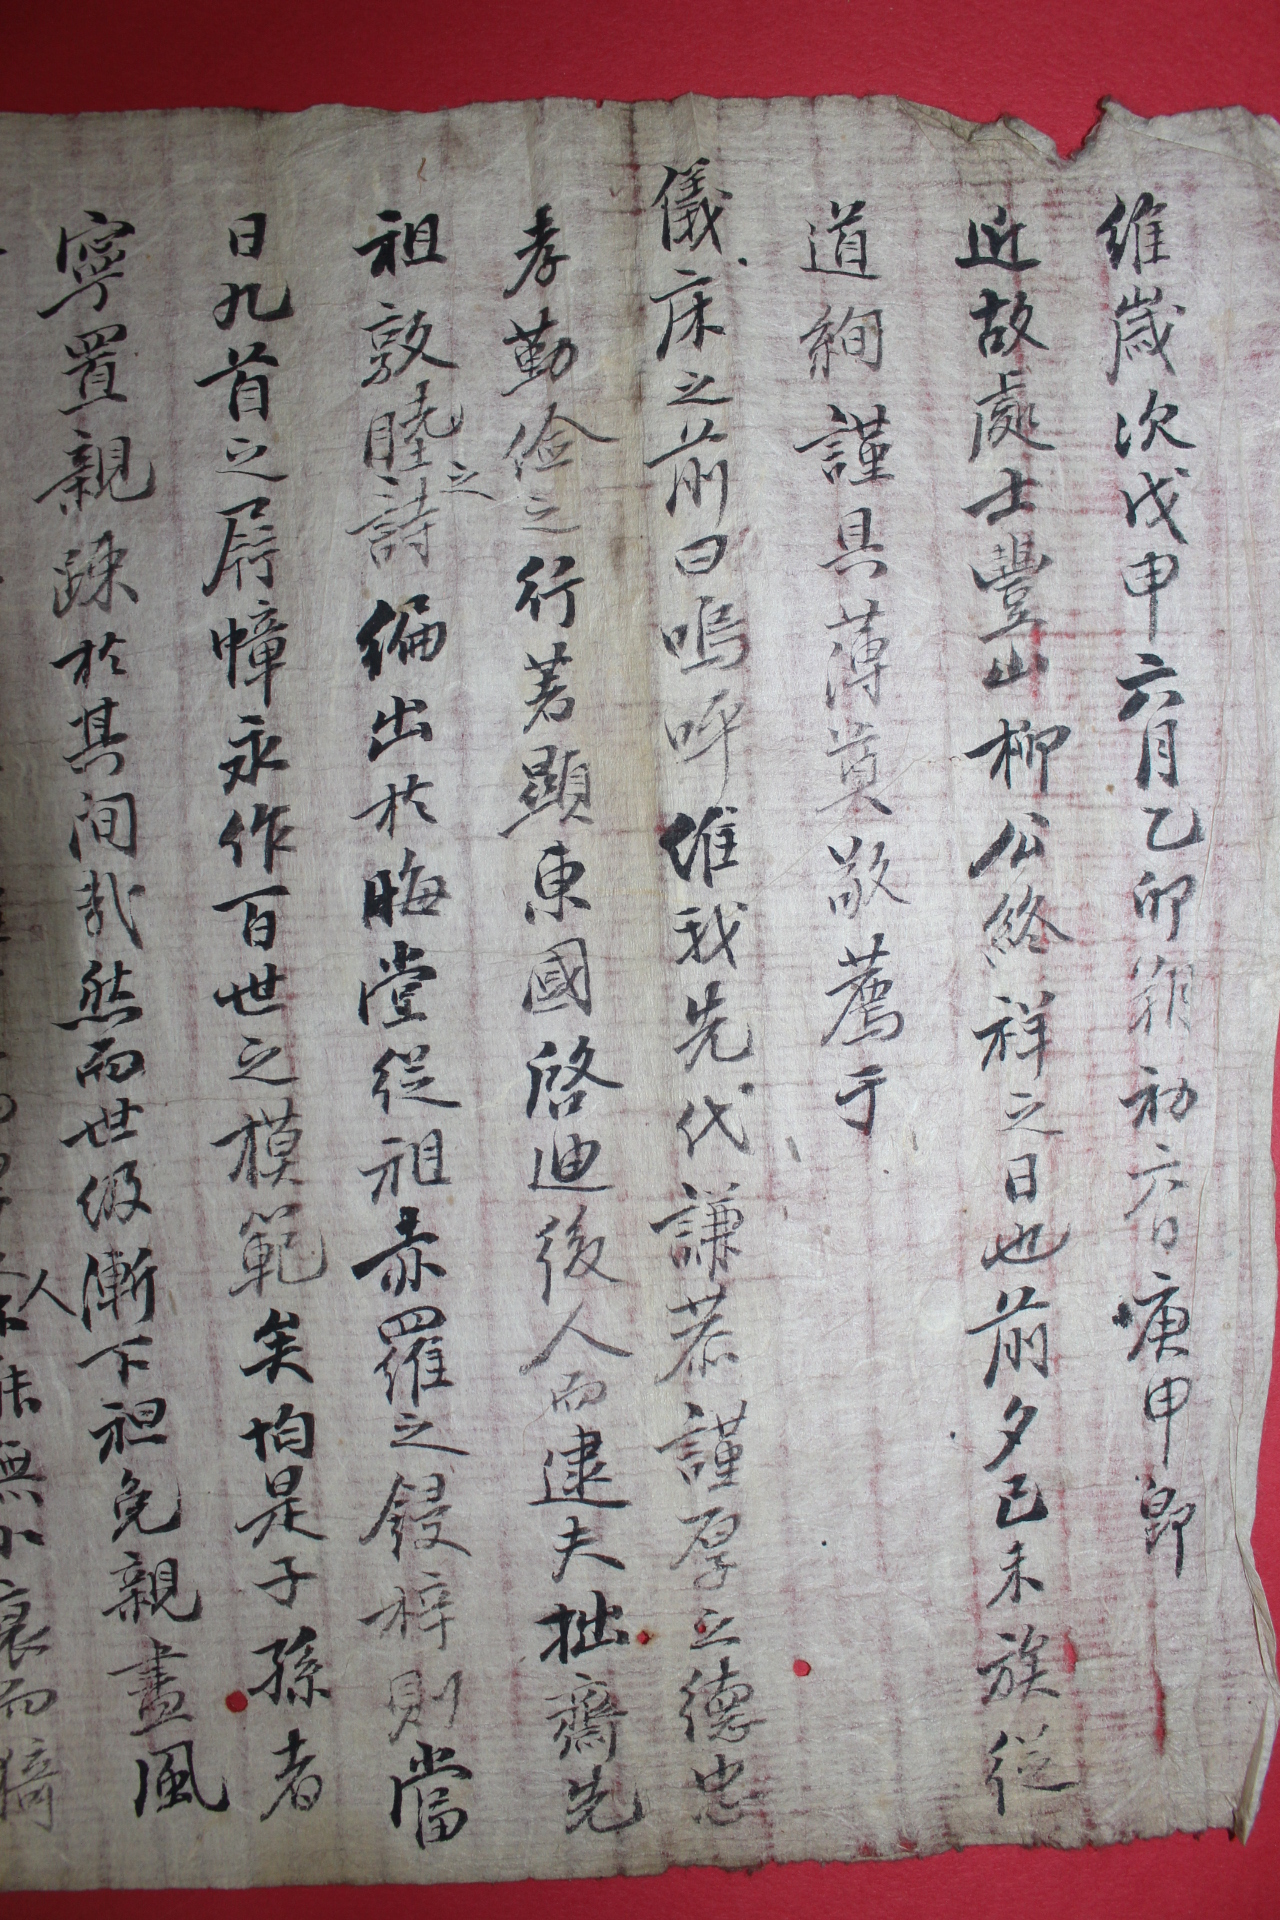 維歲次戊申六月乙卯朔初六日庚申卽
近故處士豐山柳公終祥之日也前夕己未族從
道絢謹具薄奠敬薦于
儀床之前曰嗚呼維我先代謙恭謹厚之德忠
孝勤儉之行著顯東國啓迪後人而逮夫拙齋先
祖敦睦之詩編出於晦堂從祖赤羅之鋟梓則當
日九首之屛幛永作百世之模範矣怕是子孫者
寧置親踈於其間哉然而世級漸下袒免親盡風
人無小裵而